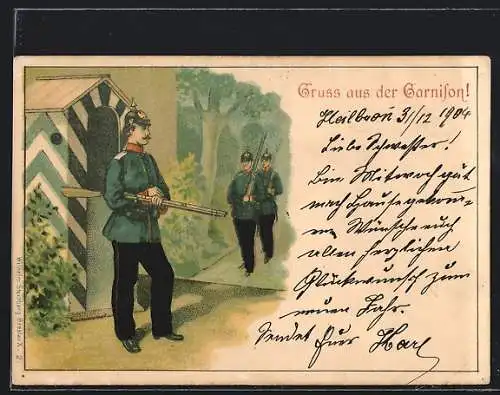 Gruss aus der Garnison!
Heilbronn 31/12 1904
Liebe Schwester!
Bin Mittwoch gut
nach Hause gekom-
men Wünsche euch
allen herzlichen
Glückwunsch zum
neuen Jahr.
Sendet Euer Karl